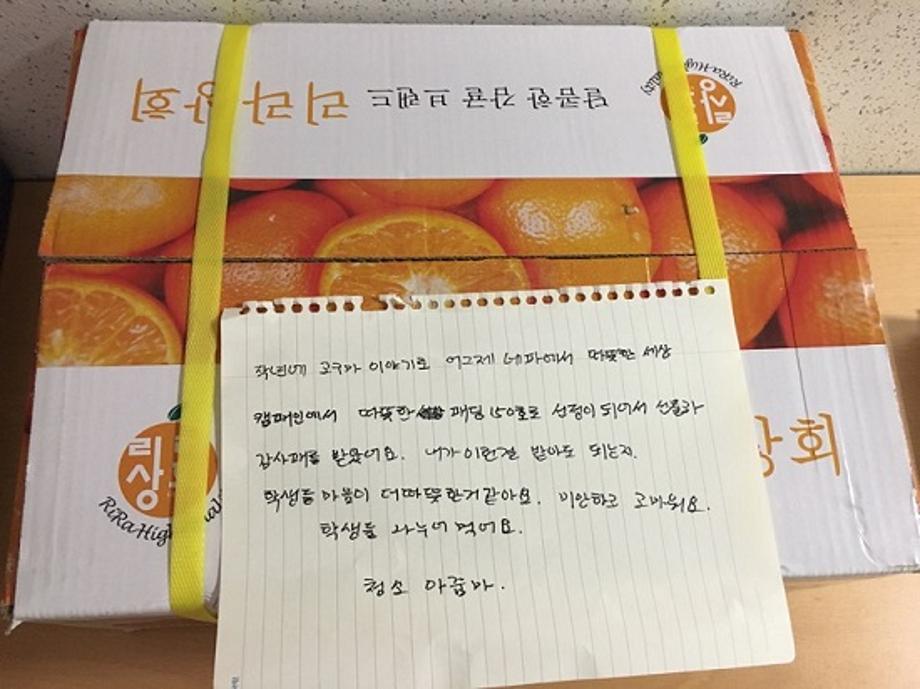 리라상회
달콤한 감귤 브랜드
리
상
RiRa High
상회
작년에 코코아 이야기로 어그제 네파에서 따뜻한 세상
캠패인에서 따뜻한 패딩 150호로 선정이 되어서 선물과
감사패를 받았어요. 내가 이런걸 받아도 되는지.
학생들 마음이 더 따뜻한거 같아요. 미안하고 고마워요.
학생들 나누어 먹어요.
청소 아줌마.